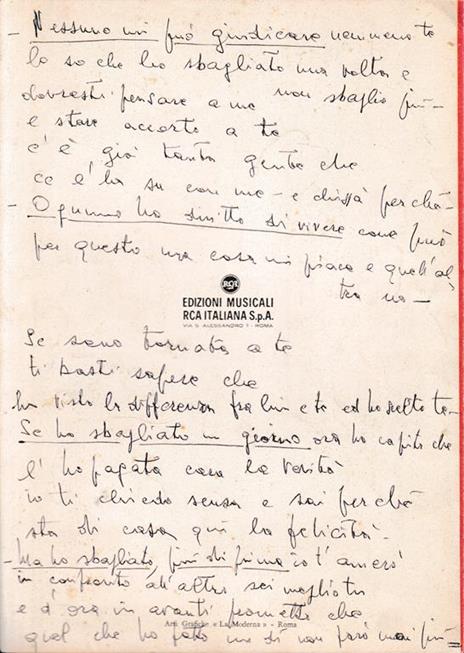 - Nessuno mi può giudicare nemmeno te
lo so che ho sbagliato una volta e
non sbaglio più -
dovresti pensare a me
e stare accorto a te
c'è già tanta gente che
ce l'ha su con me - e chissà perchè -
- Ognuno ha diritto di vivere come può
per questo una cosa mi piace e quell'al
tra no -
RCA
EDIZIONI MUSICALI
RCA ITALIANA S.p.A.
VIA S. ALESSANDRO 7 - ROMA
Se sono tornata a te
ti basti sapere che
ho visto la differenza fra lui e te ed ho scelto te -
Se ho sbagliato un giorno ora ho capito che
l'ho pagata cara la verità
io ti chiedo scusa e sai perchè
sta di casa qui la felicità -
- Ma ho sbagliato, più di prima io t'amerò
in confronto all'altro sei meglio tu
e d'ora in avanti prometto che
Arti Grafiche « La Moderna » - Roma
quel che ho fatto un dì non farò mai più -